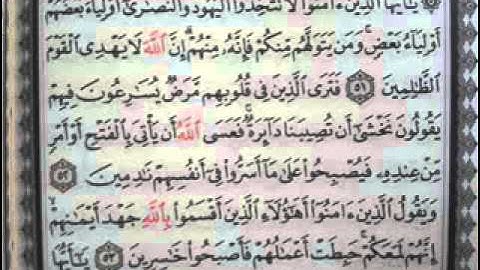 يَٰٓأَيُّهَا ٱلَّذِينَ ءَامَنُوا۟ لَا تَتَّخِذُوا۟ ٱلْيَهُودَ وَٱلنَّصَٰرَىٰٓ أَوْلِيَآءَ بَعْضُهُمْ
أَوْلِيَآءُ بَعْضٍ وَمَن يَتَوَلَّهُم مِّنكُمْ فَإِنَّهُۥ مِنْهُمْ إِنَّ ٱللَّهَ لَا يَهْدِى ٱلْقَوْمَ
ٱلظَّٰلِمِينَ ٥١ فَتَرَى ٱلَّذِينَ فِى قُلُوبِهِم مَّرَضٌ يُسَٰرِعُونَ فِيهِمْ
يَقُولُونَ نَخْشَىٰٓ أَن تُصِيبَنَا دَآئِرَةٌ فَعَسَى ٱللَّهُ أَن يَأْتِىَ بِٱلْفَتْحِ أَوْ أَمْرٍ
مِّنْ عِندِهِۦ فَيُصْبِحُوا۟ عَلَىٰ مَآ أَسَرُّوا۟ فِىٓ أَنفُسِهِمْ نَٰدِمِينَ ٥٢
وَيَقُولُ ٱلَّذِينَ ءَامَنُوٓا۟ أَهَٰٓؤُلَآءِ ٱلَّذِينَ أَقْسَمُوا۟ بِٱللَّهِ جَهْدَ أَيْمَٰنِهِمْ
إِنَّهُمْ لَمَعَكُمْ حَبِطَتْ أَعْمَٰلُهُمْ فَأَصْبَحُوا۟ خَٰسِرِينَ ٥٣ يَٰٓأَيُّهَا